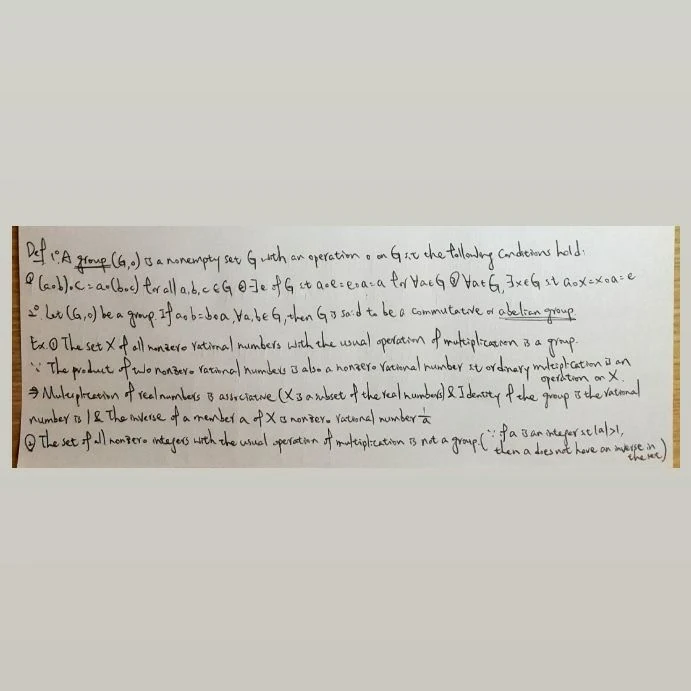 Def 1° A group (G,∘) is a nonempty set G with an operation ∘ on G s.t the following conditions hold:
① (a∘b)∘c = a∘(b∘c) for all a,b,c ∈ G ② ∃e of G st a∘e=e∘a=a for ∀a∈G ③ ∀a∈G, ∃x∈G st a∘x=x∘a=e
2° Let (G,∘) be a group. If a∘b=b∘a, ∀a,b∈G, then G is said to be a commutative or abelian group.
Ex. ① The set X of all nonzero rational numbers with the usual operation of multiplication is a group.
∵ The product of two nonzero rational numbers is also a nonzero rational number st ordinary multiplication is an operation on X.
⇒ Multiplication of real numbers is associative (X is a subset of the real numbers) & Identity of the group is the rational
number is 1 & The inverse of a member a of X is nonzero rational number 1/a
② The set of all nonzero integers with the usual operation of multiplication is not a group. (∵ If a is an integer st |a|>1,
then a does not have an inverse in
the set)